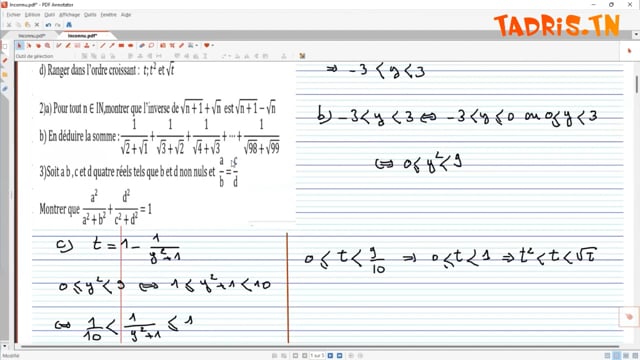 Inconnu.pdf* - PDF Annotator
TADRIS.TN
Fichier Edition
Affichage Outils Fenêtre Aide
Inconnu.pdf* Inconnu.pdf*
Outil de sélection
d) Ranger dans l'ordre croissant : t; t² et √t
2)a) Pour tout n ∈ IN, montrer que l'inverse de √n+1 + √n est √n+1 − √n
b) En déduire la somme : 1/(√2+√1) + 1/(√3+√2) + 1/(√4+√3) + ··· + 1/(√98+√99)
3)Soit a b , c et d quatre réels tels que b et d non nuls et a/b = c/d
Montrer que a²/(a²+b²) + d²/(c²+d²) = 1
⇒ −3 < y < 3
b) −3 < y < 3 ⇔ −3 < y ≤ 0 ou 0 ≤ y < 3
⇔ 0 ≤ y² < 9
c) t = 1 − 1/(y²+1)
0 ≤ y² < 9 ⇔ 1 ≤ y²+1 < 10
⇔ 1/10 < 1/(y²+1) ≤ 1
0 ≤ t < 9/10 ⇒ 0 ≤ t < 1 ⇒ t² < t < √t
1 sur 5